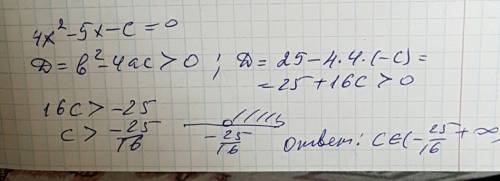 4x² - 5x - c = 0
D = b² - 4ac > 0 ; D = 25 - 4·4·(-c) =
= 25 + 16c > 0
16c > -25
c > -25/16
-25/16
Ответ: c ∈ (-25/16 + ∞)